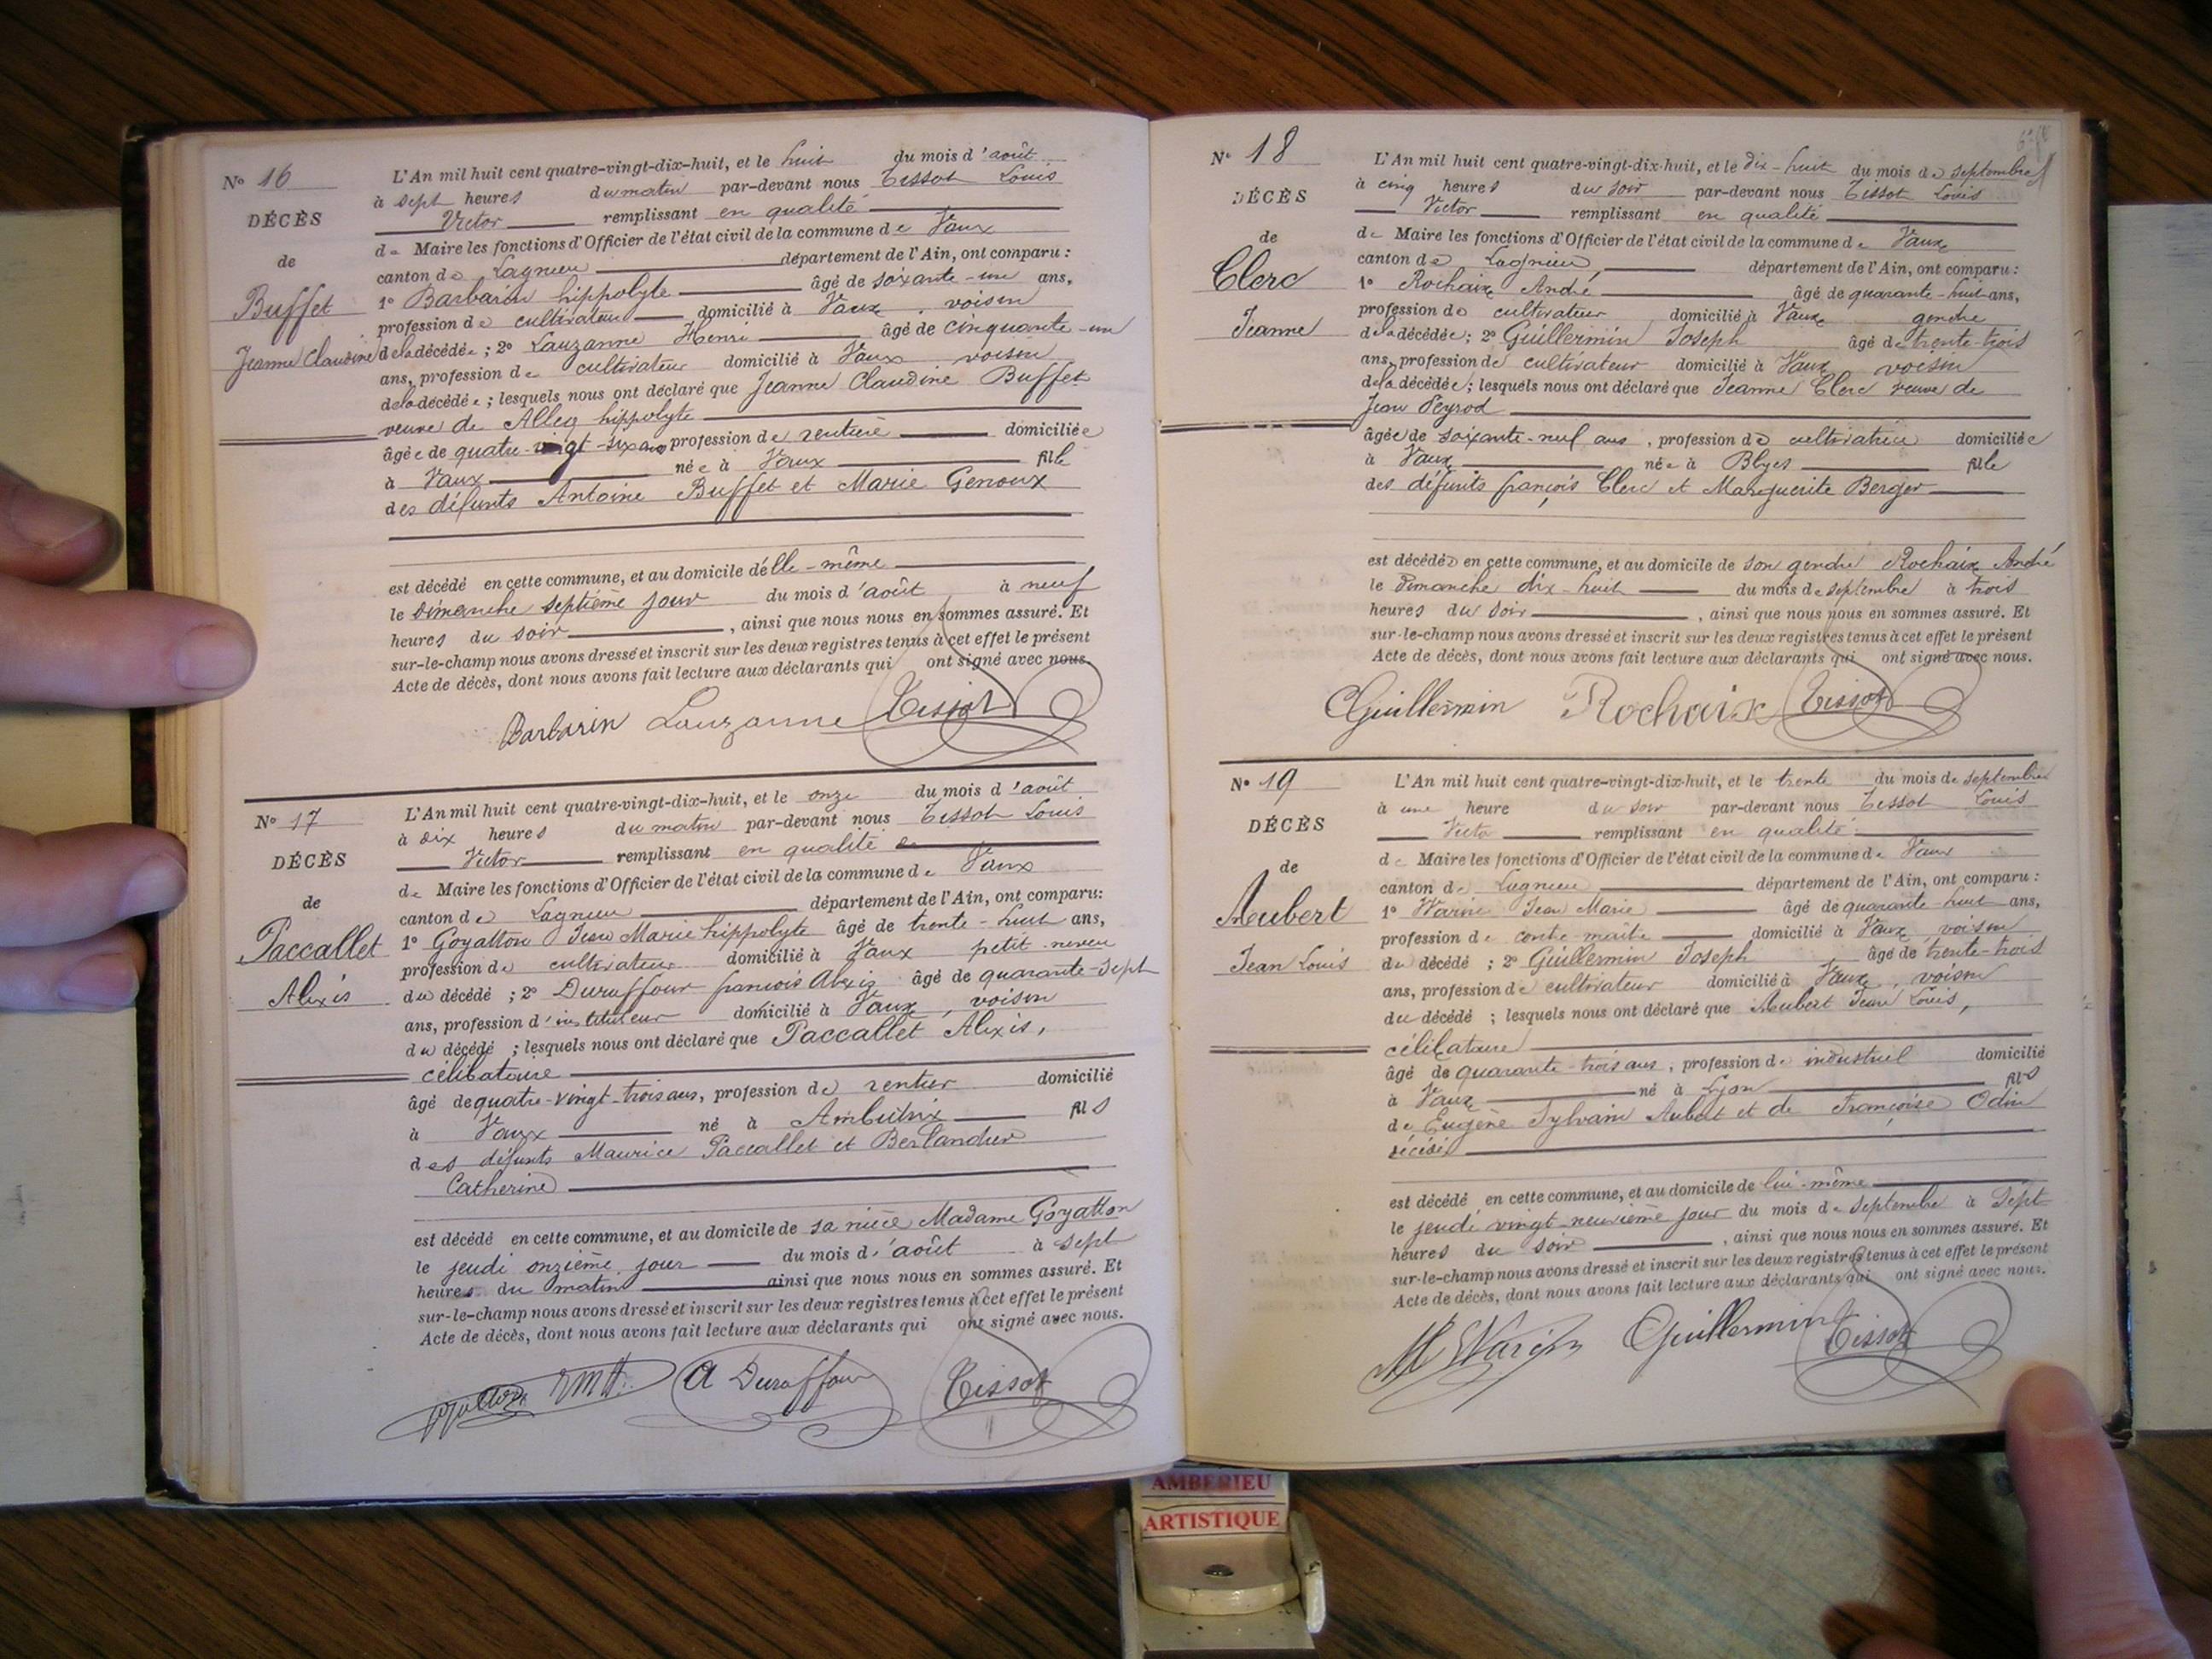 N° 16
DÉCÈS
de
Buffet
Jeanne Claudine
L'An mil huit cent quatre-vingt-dix-huit, et le huit du mois d'août
à sept heures du matin par-devant nous Tissot Louis
Victor remplissant en qualité
de Maire les fonctions d'Officier de l'état civil de la commune de Vaux
canton de Lagnieu département de l'Ain, ont comparu :
1° Barbarin hippolyte âgé de soixante-un ans,
profession de cultivateur domicilié à Vaux, voisin
de la décédée ; 2° Lauzanne Henri âgé de cinquante-un
ans, profession de cultivateur domicilié à Vaux voisin
de la décédée ; lesquels nous ont déclaré que Jeanne Claudine Buffet
veuve de Alleg hippolyte
âgée de quatre-vingt-six ans profession de rentière domiciliée
à Vaux née à Vaux fille
des défunts Antoine Buffet et Marie Genoux
est décédé en cette commune, et au domicile d'elle-même
le Dimanche septième jour du mois d'août à neuf
heures du soir, ainsi que nous nous en sommes assuré. Et
sur-le-champ nous avons dressé et inscrit sur les deux registres tenus à cet effet le présent
Acte de décès, dont nous avons fait lecture aux déclarants qui ont signé avec nous.
Barbarin Lauzanne Tissot
N° 17
DÉCÈS
de
Paccallet
Alexis
L'An mil huit cent quatre-vingt-dix-huit, et le onze du mois d'août
à dix heures du matin par-devant nous Tissot Louis
Victor remplissant en qualité
de Maire les fonctions d'Officier de l'état civil de la commune de Vaux
canton de Lagnieu département de l'Ain, ont comparu :
1° Goyatton Jean Marie hippolyte âgé de trente-huit ans,
profession de cultivateur domicilié à Vaux petit-neveu
du décédé ; 2° Duraffour françois Alexis âgé de quarante-sept
ans, profession d'instituteur domicilié à Vaux, voisin
du décédé ; lesquels nous ont déclaré que Paccallet Alexis,
célibatoire
âgé de quatre-vingt-trois ans, profession de rentier domicilié
à Vaux né à Ambutrix fils
des défunts Maurice Paccallet et Berlandier
Catherine
est décédé en cette commune, et au domicile de sa nièce Madame Goyatton
le jeudi onzième jour du mois d'août à sept
heures du matin ainsi que nous nous en sommes assuré. Et
sur-le-champ nous avons dressé et inscrit sur les deux registres tenus à cet effet le présent
Acte de décès, dont nous avons fait lecture aux déclarants qui ont signé avec nous.
A Duraffour Tissot
N° 18
DÉCÈS
de
Clerc
Jeanne
L'An mil huit cent quatre-vingt-dix-huit, et le dix-huit du mois de septembre
à cinq heures du soir par-devant nous Tissot Louis
Victor remplissant en qualité
de Maire les fonctions d'Officier de l'état civil de la commune de Vaux
canton de Lagnieu, département de l'Ain, ont comparu :
1° Rochaix André âgé de quarante-huit ans,
profession de cultivateur domicilié à Vaux gendre
de la décédée ; 2° Guillermin Joseph âgé de trente-trois
ans, profession de cultivateur domicilié à Vaux voisin
de la décédée ; lesquels nous ont déclaré que Jeanne Clerc veuve de
Jean Peyrod
âgée de soixante-neuf ans, profession de cultivatrice domiciliée
à Vaux née à Blyes fille
des défunts françois Clerc et Marguerite Berger
est décédée en cette commune, et au domicile de son gendre Rochaix André
le Dimanche dix-huit du mois de septembre à trois
heures du soir, ainsi que nous nous en sommes assuré. Et
sur-le-champ nous avons dressé et inscrit sur les deux registres tenus à cet effet le présent
Acte de décès, dont nous avons fait lecture aux déclarants qui ont signé avec nous.
Guillermin Rochaix Tissot
N° 19
DÉCÈS
de
Aubert
Jean Louis
L'An mil huit cent quatre-vingt-dix-huit, et le trente du mois de septembre
à une heure du soir par-devant nous Tissot Louis
Victor remplissant en qualité
de Maire les fonctions d'Officier de l'état civil de la commune de Vaux
canton de Lagnieu département de l'Ain, ont comparu :
1° Warin Jean Marie âgé de quarante-huit ans,
profession de contre-maître domicilié à Vaux, voisin
du décédé ; 2° Guillermin Joseph âgé de trente-trois
ans, profession de cultivateur domicilié à Vaux, voisin
du décédé ; lesquels nous ont déclaré que Aubert Jean Louis,
célibataire
âgé de quarante-trois ans, profession de industriel domicilié
à Vaux né à Lyon fils
de Eugène Sylvain Aubert et de Françoise Odin
décédés
est décédé en cette commune, et au domicile de lui-même
le jeudi vingt-neuvième jour du mois de septembre à sept
heures du soir, ainsi que nous nous en sommes assuré. Et
sur-le-champ nous avons dressé et inscrit sur les deux registres tenus à cet effet le présent
Acte de décès, dont nous avons fait lecture aux déclarants qui ont signé avec nous.
M Warin Guillermin Tissot
AMBERIEU
ARTISTIQUE